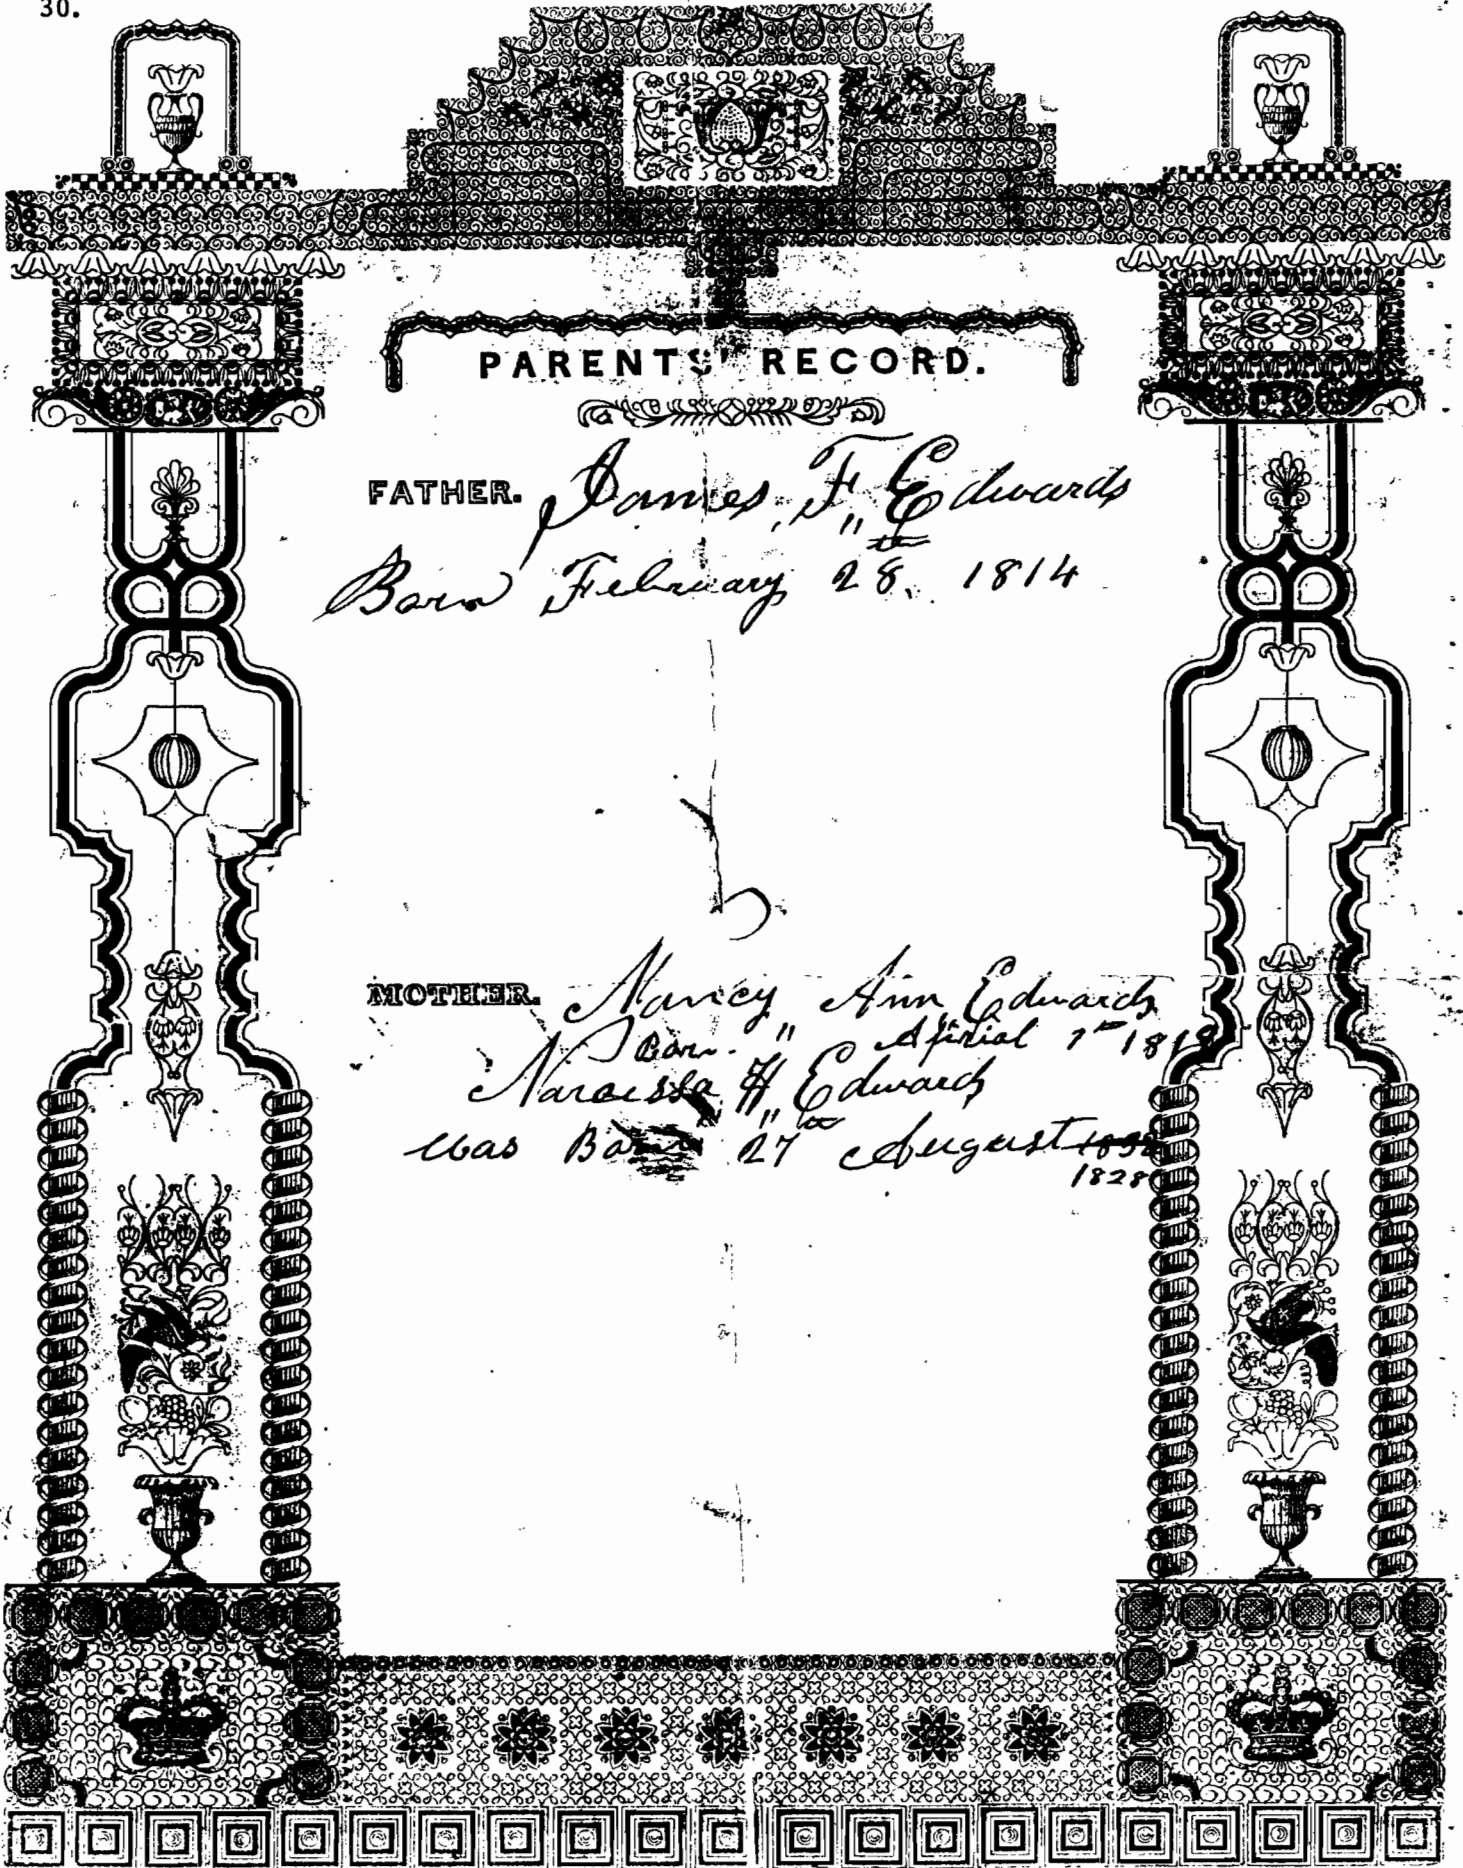 30.
PARENTS' RECORD.
FATHER. James, F,, Edwards
Born February 28th 1814
MOTHER. Nancy,, Ann Edwards
Born. Apirial 7th 1818
Narcissa H,, Edwards
Was Born 27th August 1838
1828